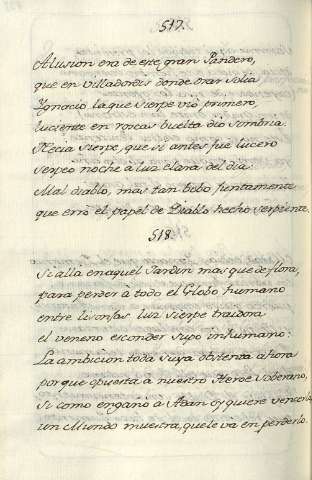 517.
Alusion era de este gran Pandero,
que en Villadordis donde orar solia
Ygnacio la que Sierpe vió primero,
luciente en roscas buelta dió sombria
Necia Sierpe, que si antes fue lucero
serpeo noche à luz clara del dia:
Mal diablo, mas tan bobo juntamente
que erró el papel de Diablo hecho serpiente.
518.
Si allá en aquel Jardin mas que de flora,
para perder à todo el Globo humano
entre lisonjas luz Sierpe traidora
el veneno esconder supo inhumano:
La ambicion toda suya obstenta ahora
porque opuesta à nuestro Heroe soberano,
si como engañó à Adan oy quiere vencerlo
un Mundo muestra, que le va en perderlo.